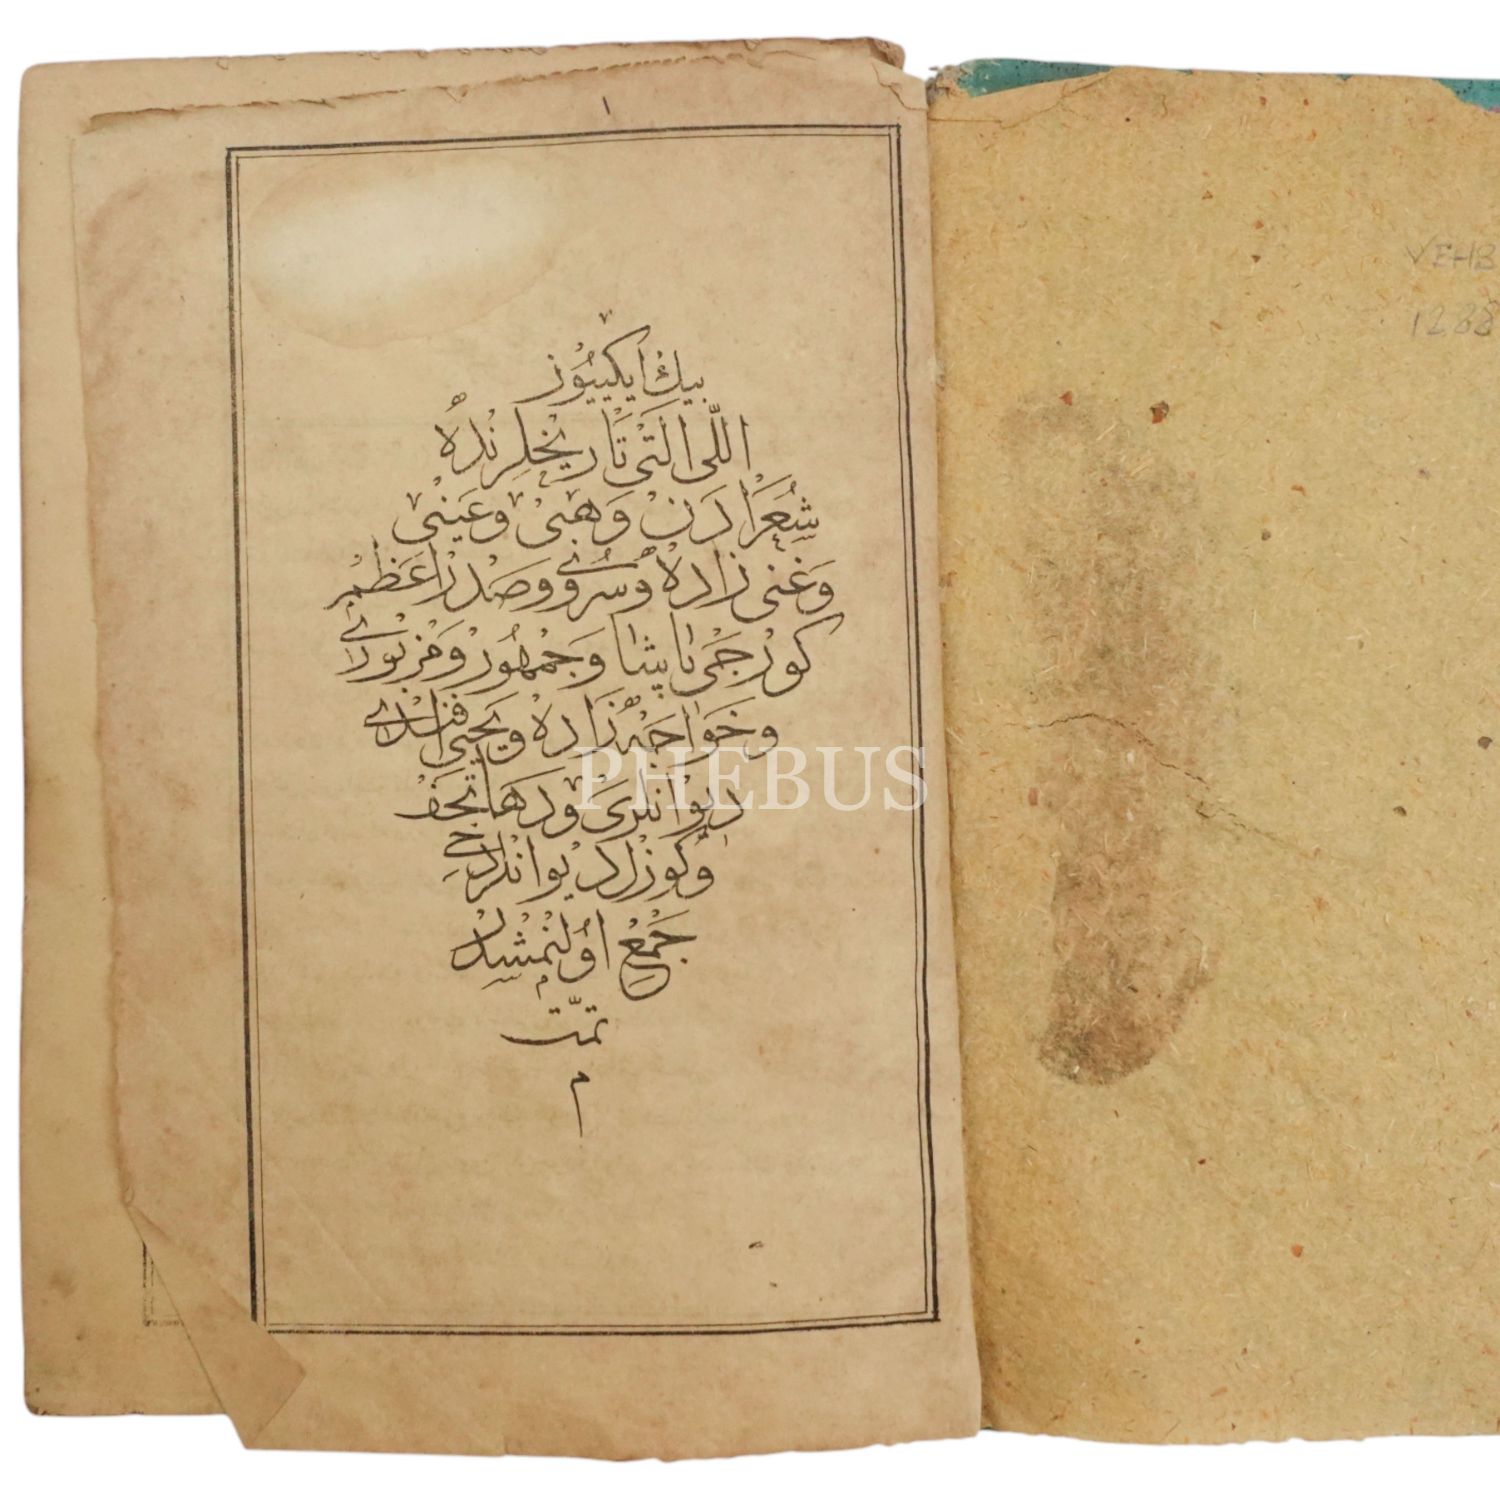 ١
بيڭ ايكييوز
اللى التى تاريخلرنده
شعرادن وهبى وعينى
وغنى زاده وسرورى وصدر اعظم
كورجى پاشا وجمهور ومزبورى
وخواجه زاده ويحيى افندى
ديوانلرى ودها تحف
وكوزل ديوانلردخى
جمع اولنمشدر
تمت
م
PHEBUS
VEHB
1288